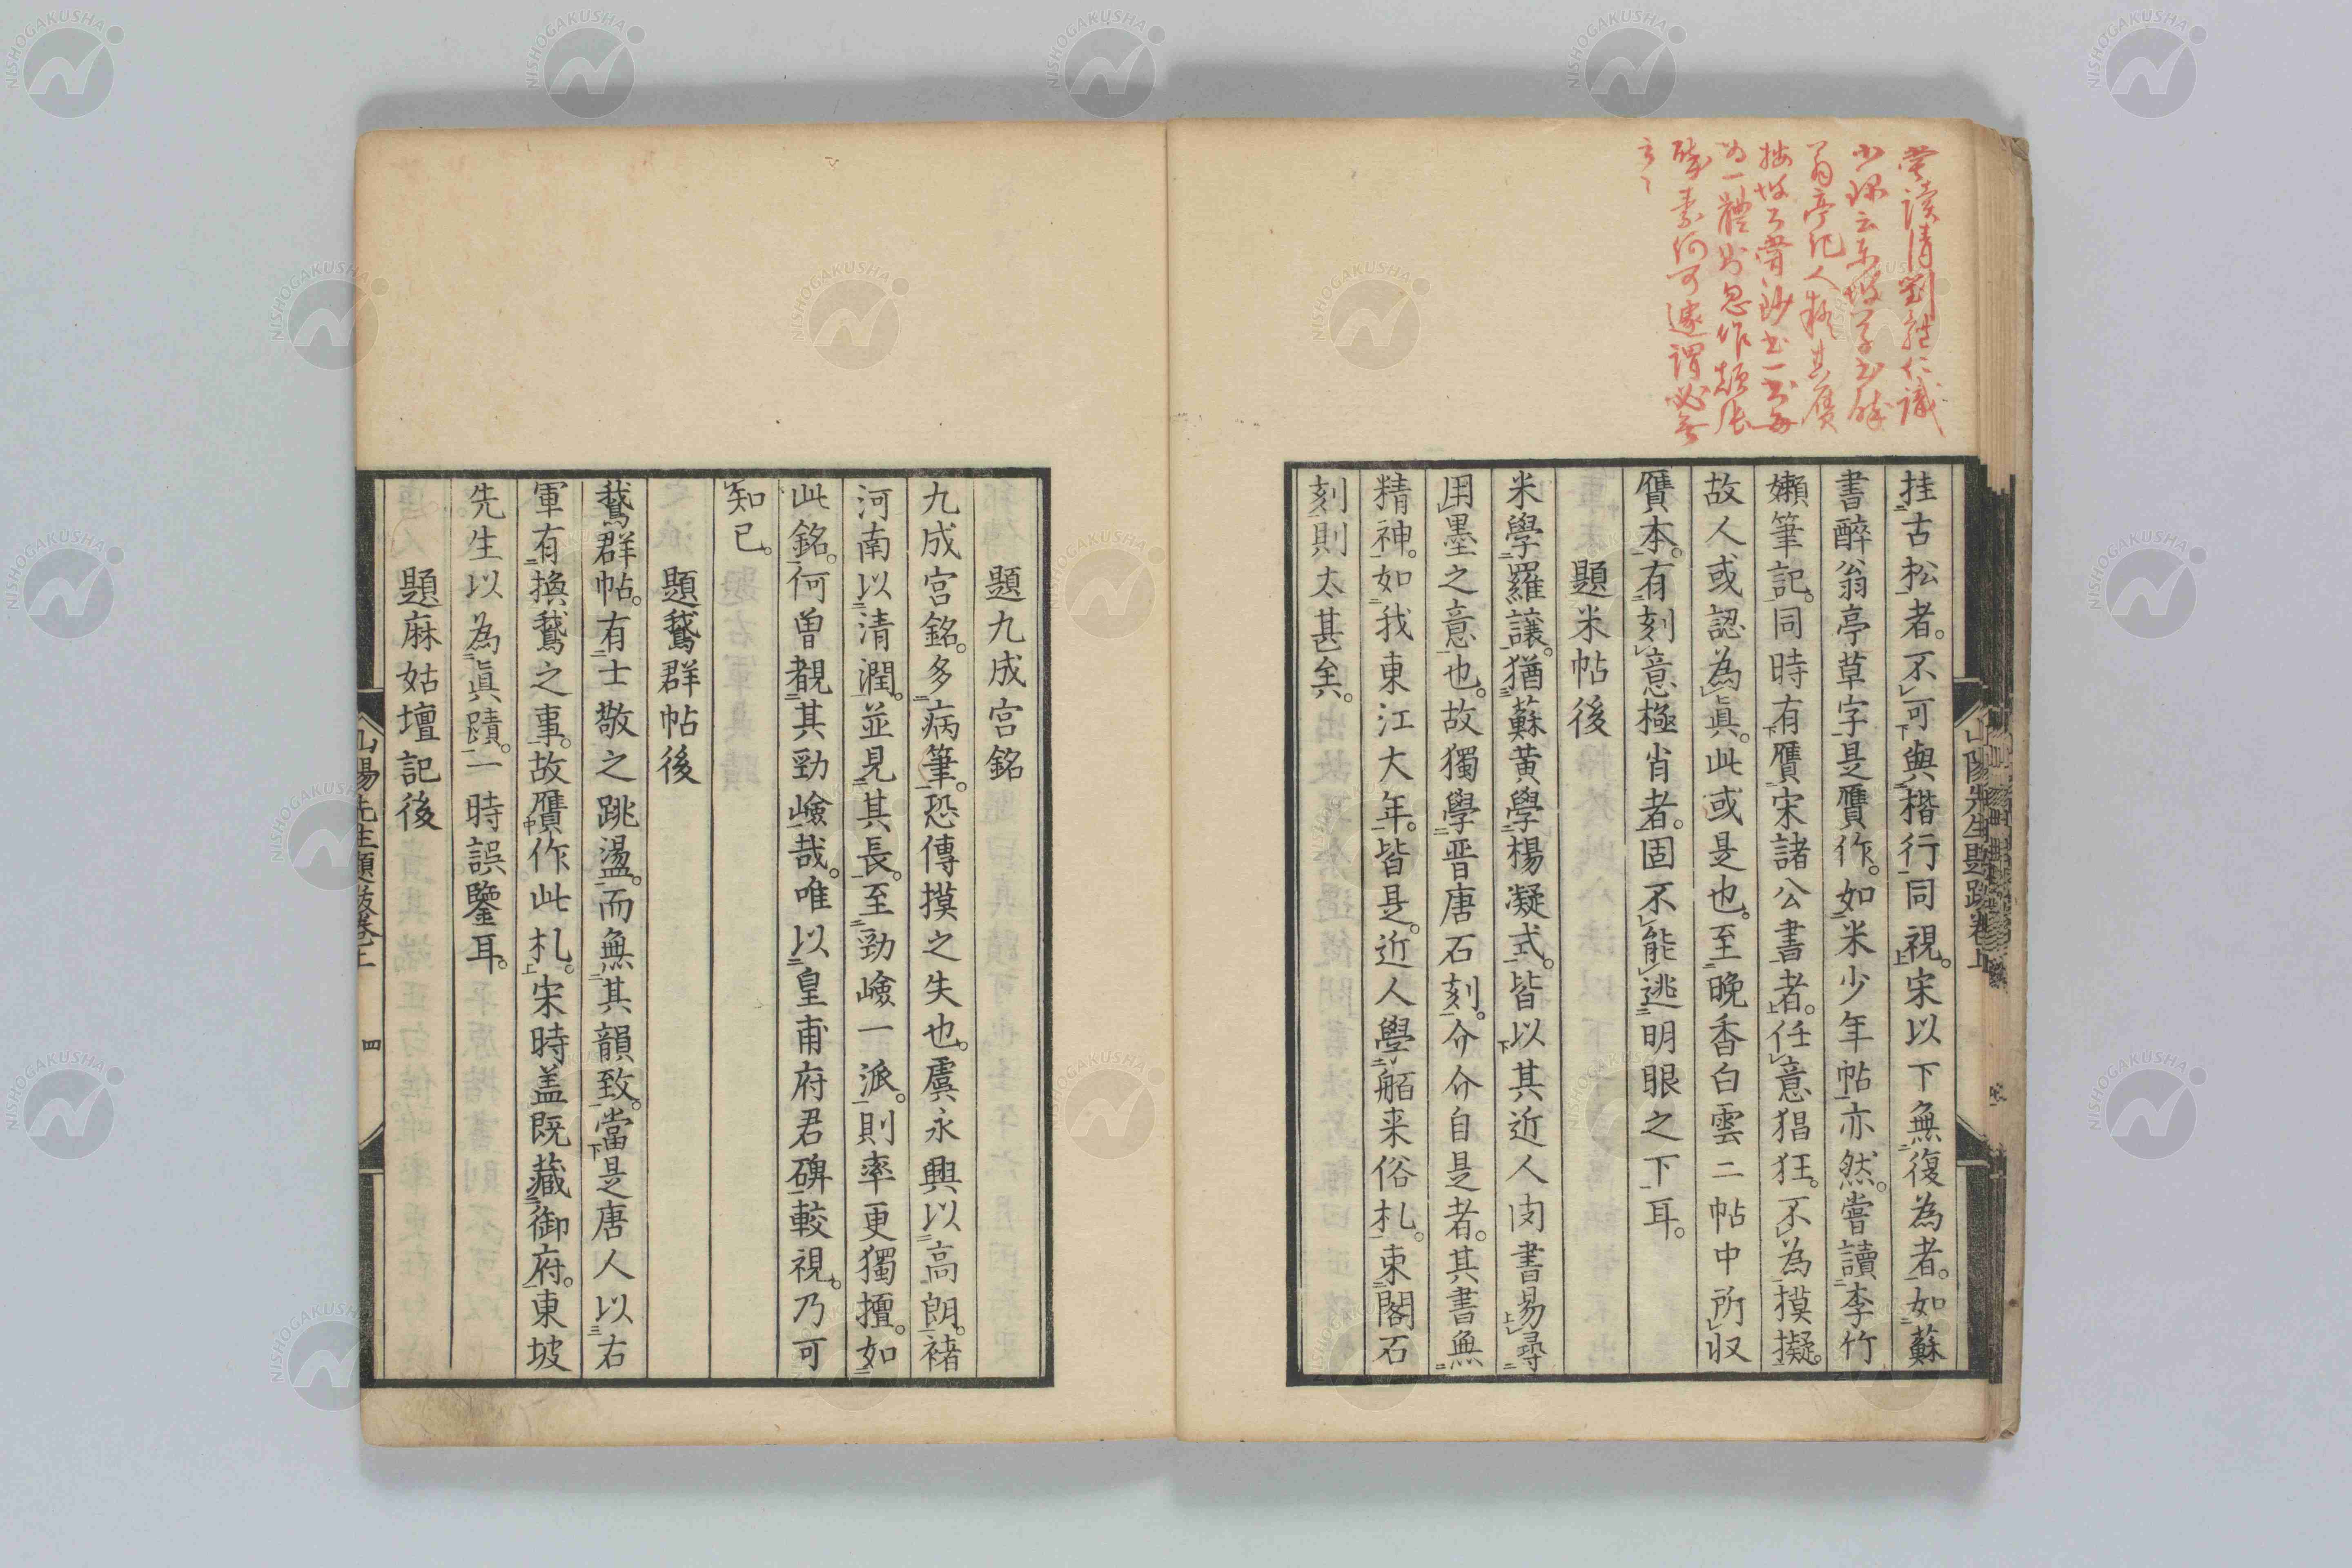 挂古松者。不可與楷行同視。宋以下無復為者。如蘇
書醉翁亭草字是贋作。如米少年帖亦然。嘗讀李竹
嬾筆記。同時有贋宋諸公書者。任意猖狂。不為摸擬。
故人或認為眞。此或是也。至晚香白雲二帖中所収
贋本。有刻意極肖者。固不能逃明眼之下耳。
題米帖後
米學羅讓。猶蘇黃學楊凝式。皆以其近人肉書易尋
用墨之意也。故獨學晋唐石刻。介介自是者。其書無
精神。如我東江大年。皆是。近人學舶来俗札。束閣石
刻則太甚矣。
山陽先生題跋卷上
題九成宮銘
九成宮銘。多病筆。恐傳摸之失也。虞永興以高朗。褚
河南以清潤。並見其長。至勁嶮一派。則率更獨擅。如
此銘。何曽覩其勁嶮哉。唯以皇甫府君碑較視。乃可
知已。
題鵞群帖後
鵞群帖。有士敬之跳盪。而無其韻致。當是唐人以右
軍有換鵞之事。故贋作此札。宋時盖既藏御府。東坡
先生以為眞蹟。一時誤鑒耳。
題麻姑壇記後
山陽先生題跋卷上
四
NISHOGAKUSHA